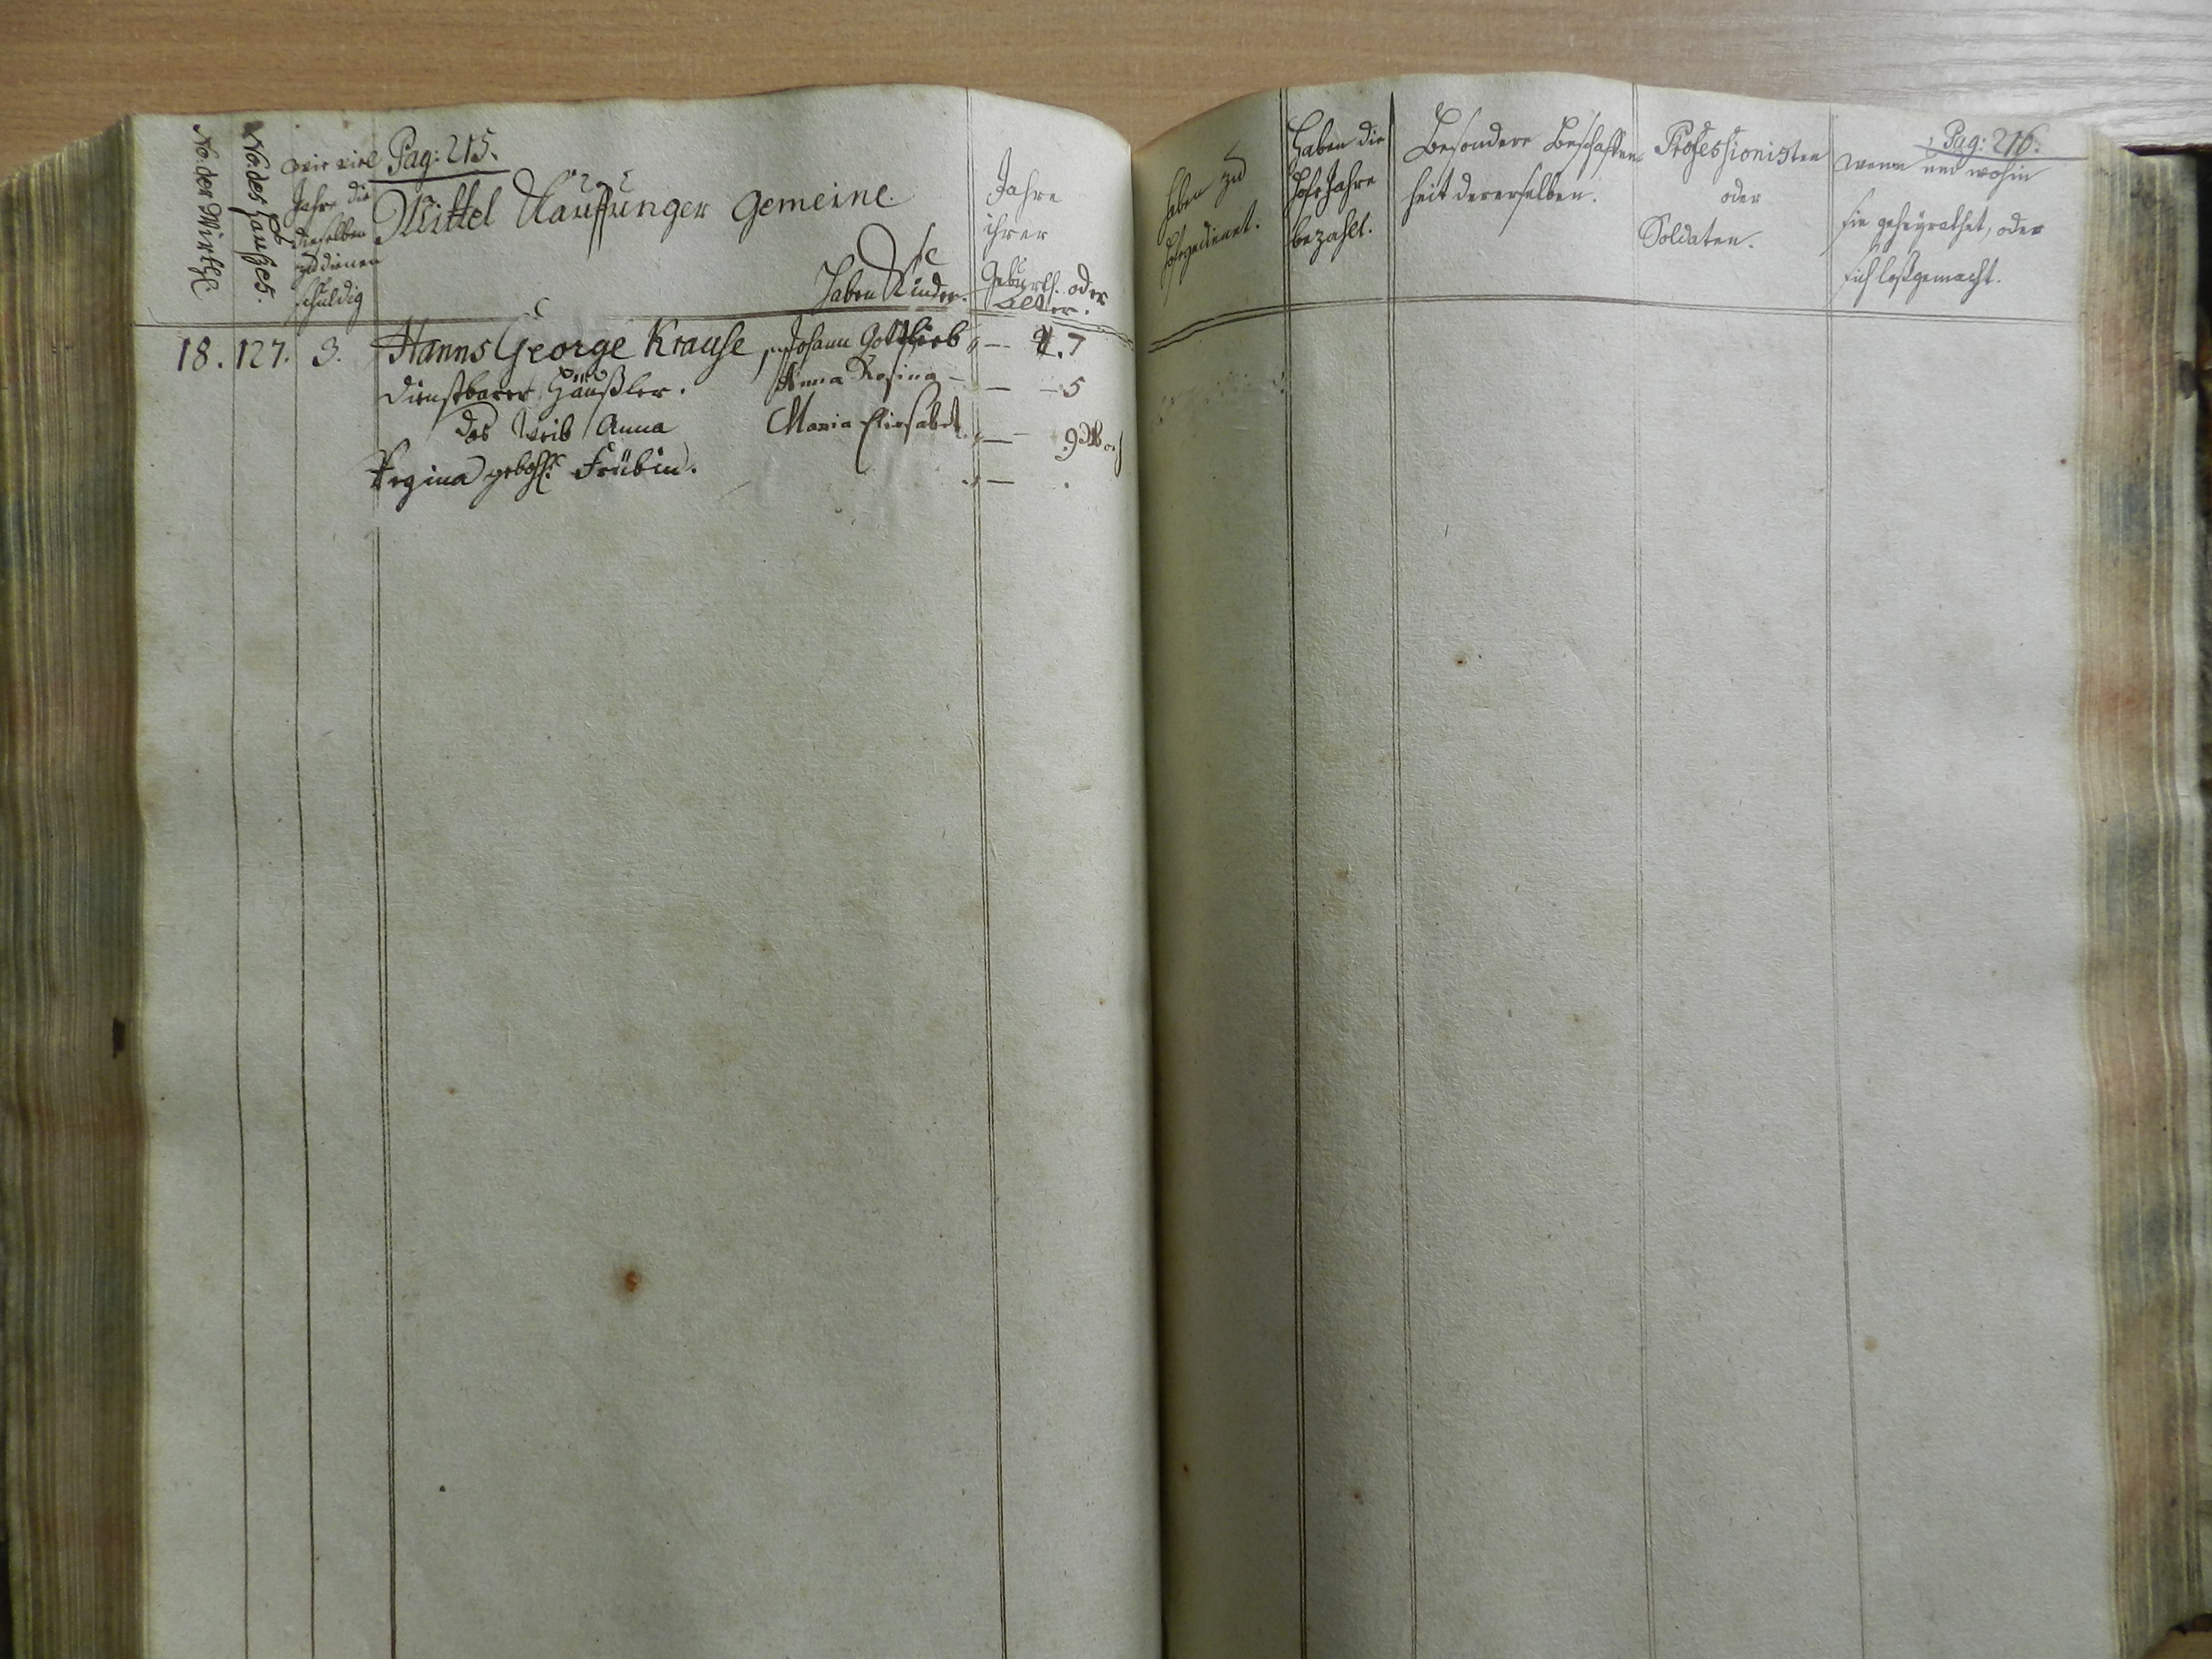 No. der Wirthe
No. des Hauses.
wie viel
Jahre die
dieselben
zu dienen
schuldig
Pag: 215.
Mittel Kauffunger Gemeine.
Haben Kinder.
Jahre
ihrer
Geburth. oder
Alter.
18. 127. 3. Hanns George Krause Johann Gottlieb — 7
dienstbarer Häußler. Anna Rosina — — 5
das Weib Anna Maria Elisabet — 9 Woch
Regina gebohr. Frübin.
Pag: 216.
haben zu
Hofe gedienet.
Haben die
Hofe Jahre
bezahlt.
Besondere Beschaffen
heit dererselben.
Professionisten
oder
Soldaten.
wenn und wohin
sie geheyrathet, oder
sich loßgemacht.